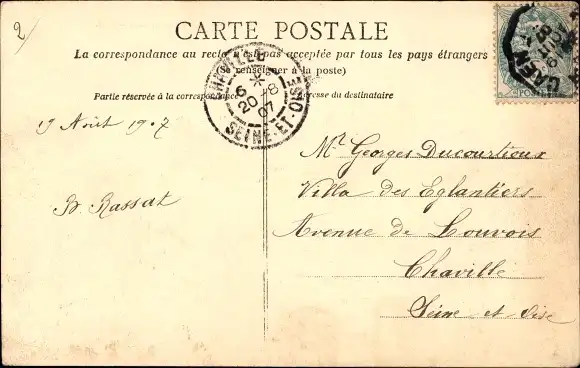 2
CARTE POSTALE
La correspondance au recto n'est pas acceptée par tous les pays étrangers
(Se renseigner à la poste)
Partie réservée à la correspondance
Adresse du destinataire
6
20-8
07
SEINE-ET-OISE
CAEN
19 Août 1907
B. Rassat
Mr Georges Ducourtioux
Villa des Eglantiers
Avenue de Louvois
Chaville
Seine-et-Oise